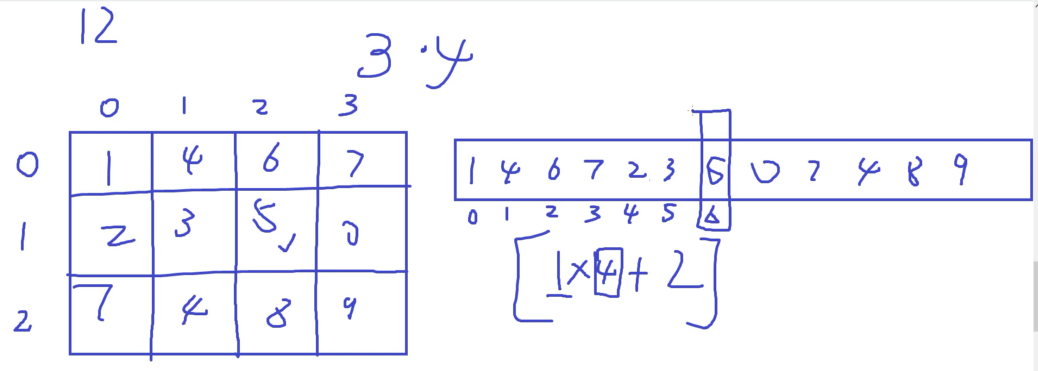 12
3 · 4
0 1 2 3
0 1 4 6 7
1 2 3 5 0
2 7 4 8 9
1 4 6 7 2 3 5 0 7 4 8 9
0 1 2 3 4 5 6
[1×4+2]